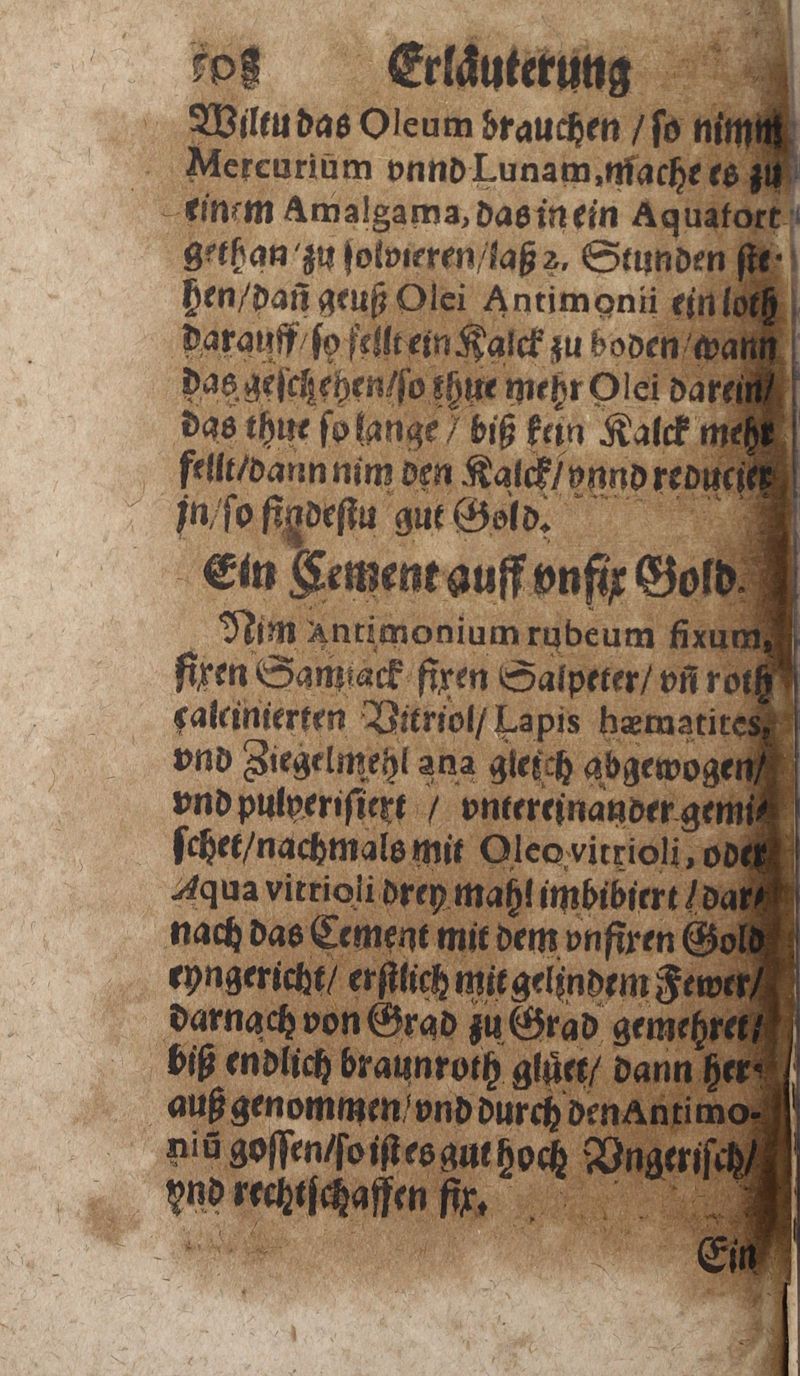 508 Erläuterung
Wiltu das Oleum brauchen / so nimm
Mercurium vnnd Lunam, mache es zu
einem Amalgama, das in ein Aquafort
gethan zu solvieren / laß 2. Stunden ste-
hen / dañ geuß Olei Antimonii ein loth
darauff / so fellt ein Kalck zu boden / wann
das geschehen / so thue mehr Olei darein /
das thue so lange / biß kein Kalck mehr
fellt / dann nim den Kalck / vnnd reducier
jn / so findestu gut Gold.
Ein Cement auff vnfix Gold.
Nim Antimonium rubeum fixum,
fixen Samiack fixen Salpeter / vñ roth
calcinierten Vitriol / Lapis hæmatites,
vnd Ziegelmehl ana gleich abgewogen /
vnd pulverisiert / vntereinander gemi-
schet / nachmals mit Oleo vitrioli, oder
Aqua vitrioli drey mahl imbibiert / dar-
nach das Cement mit dem vnfixen Gold
eyngericht / erstlich mit gelindem Fewer /
darnach von Grad zu Grad gemehret /
biß endlich braunroth glüet / dann her-
auß genommen / vnd durch den Antimo-
niū gossen / so ist es gut hoch Vngerisch /
vnd rechtschaffen fix.
Ein